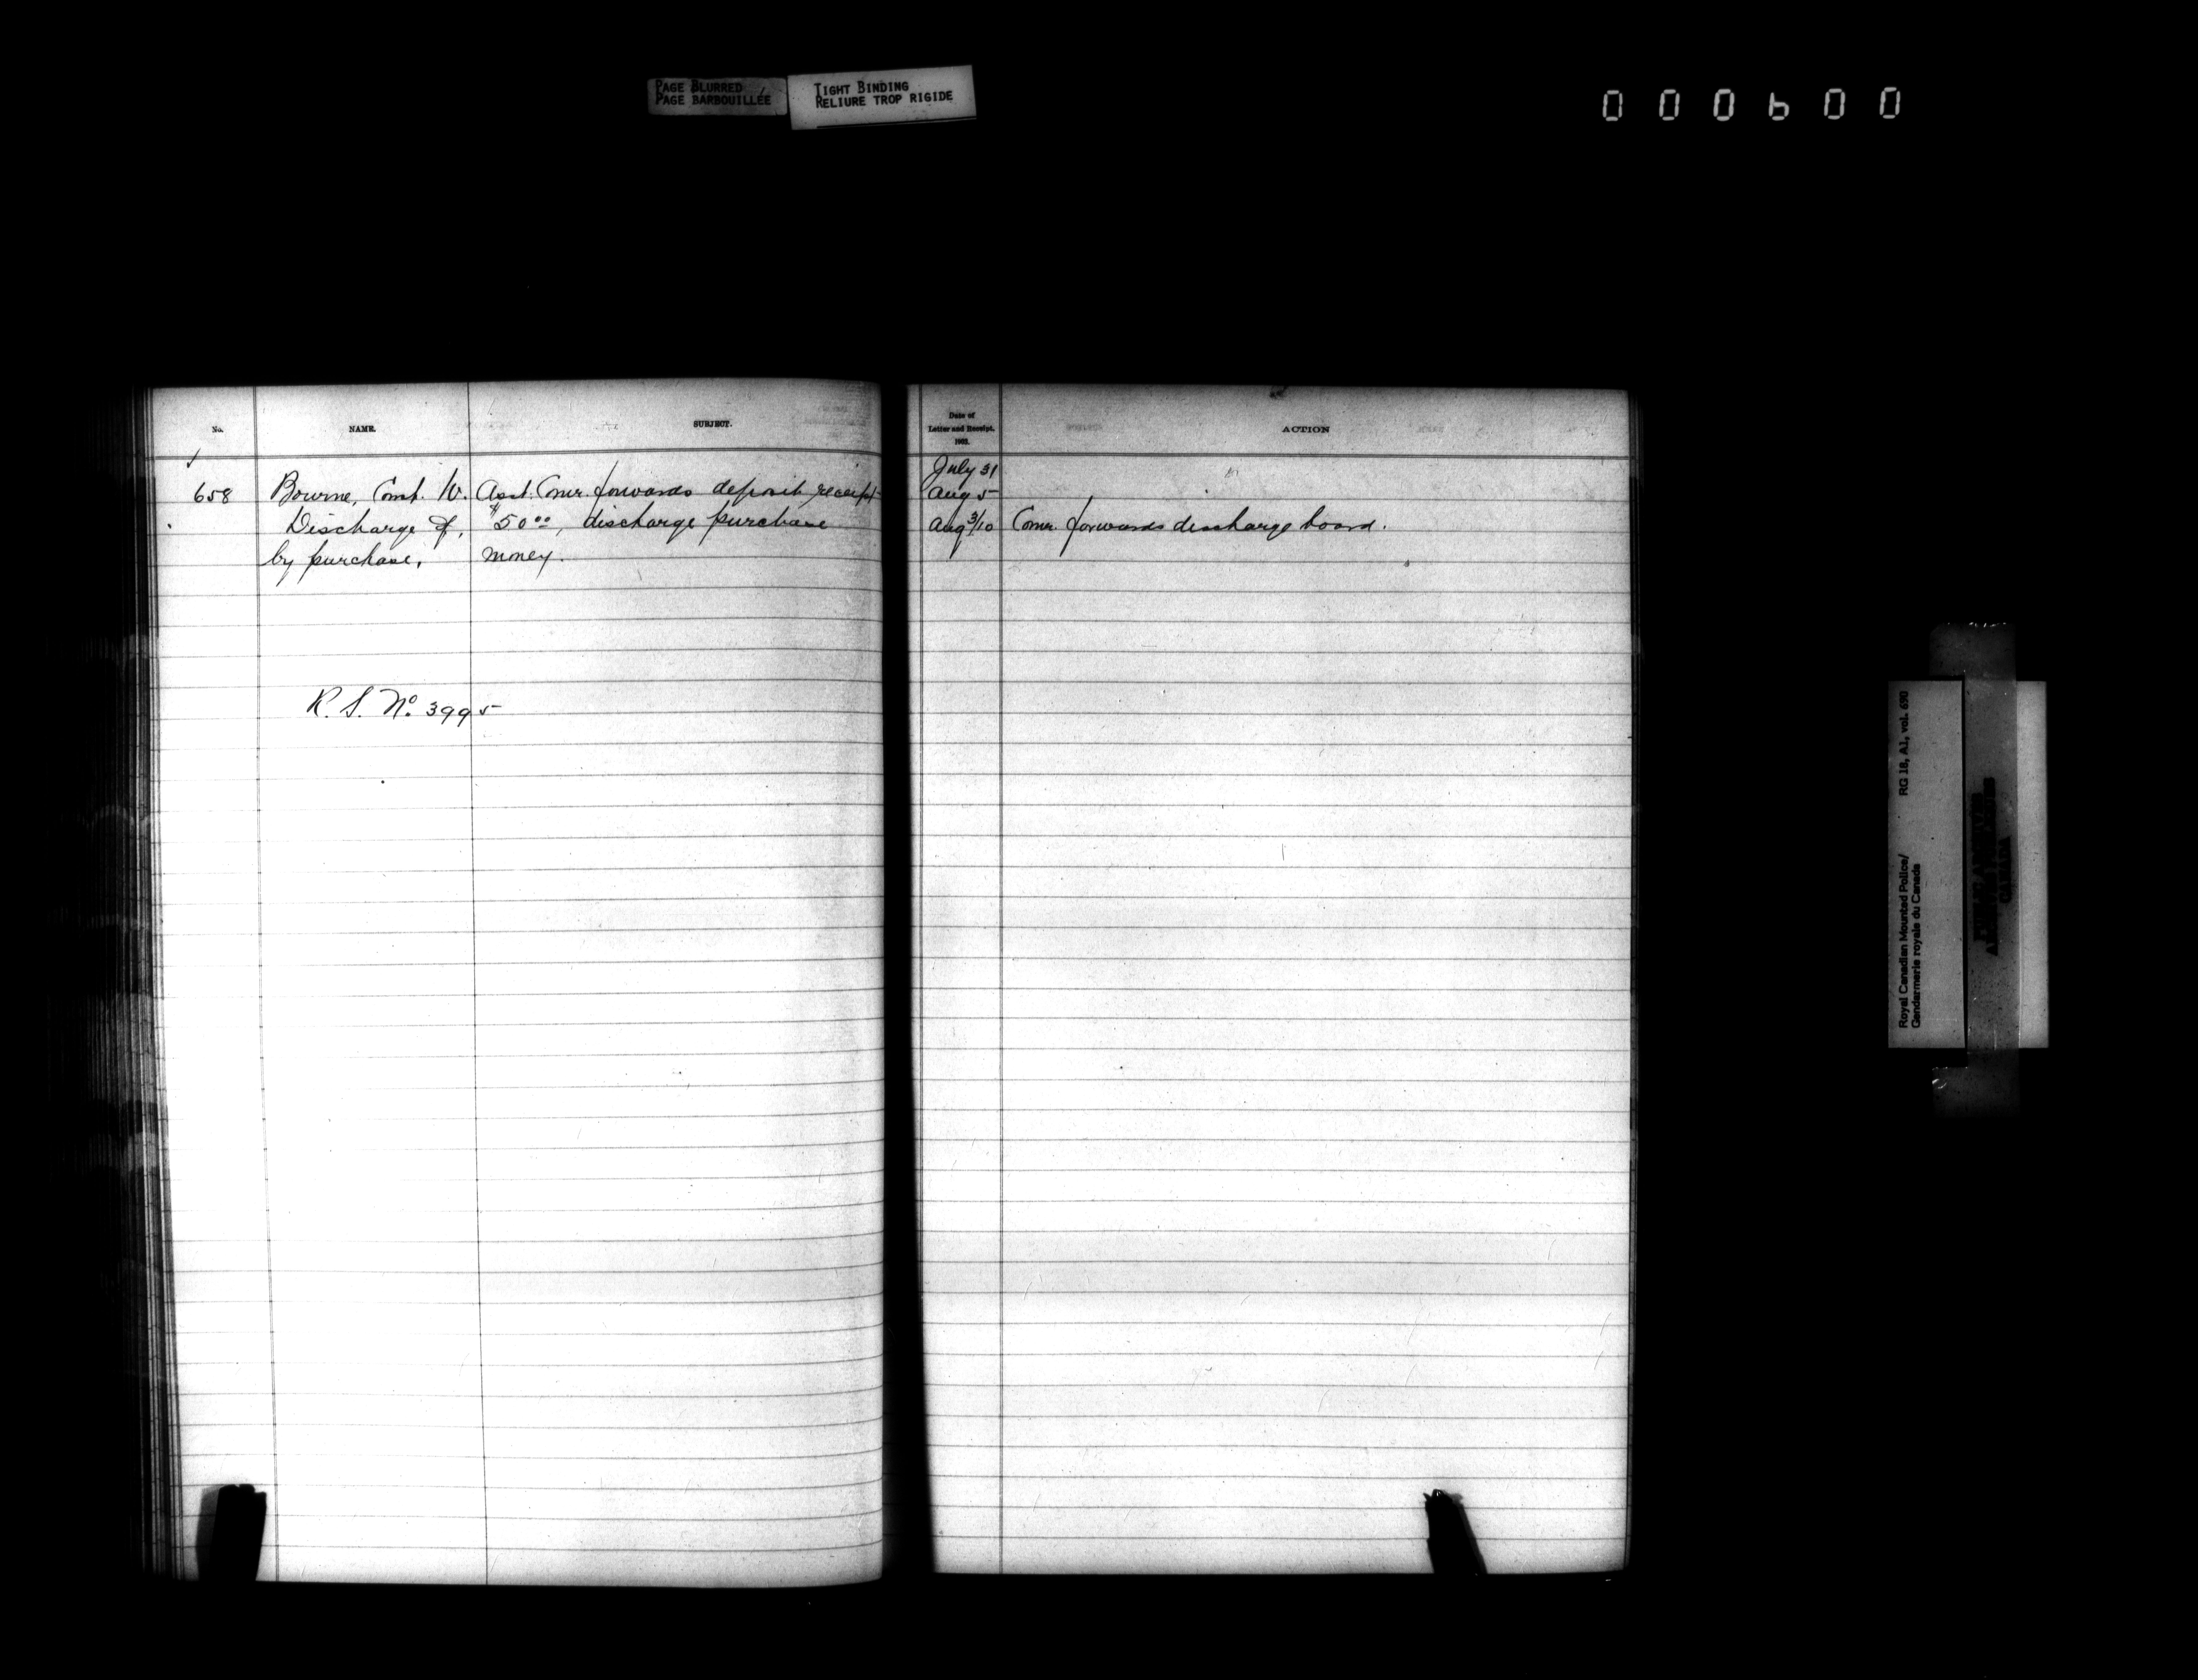 PAGE BLURRED
PAGE BARBOUILLÉE
TIGHT BINDING
RELIURE TROP RIGIDE
No.
NAME.
SUBJECT.
658
Bourne, Const. W.
Discharge of,
by purchase.
Asst. Comr. forwards deposit receipt
$50.00, discharge purchase
money.
R. S. No. 3995
Date of
Letter and Receipt.
1903.
ACTION
July 31
Aug 5
Aug 3/10 Comr. forwards discharge board.
Royal Canadian Mounted Police/ RG 18, A1, vol. 690
Gendarmerie royale du Canada
CANADA